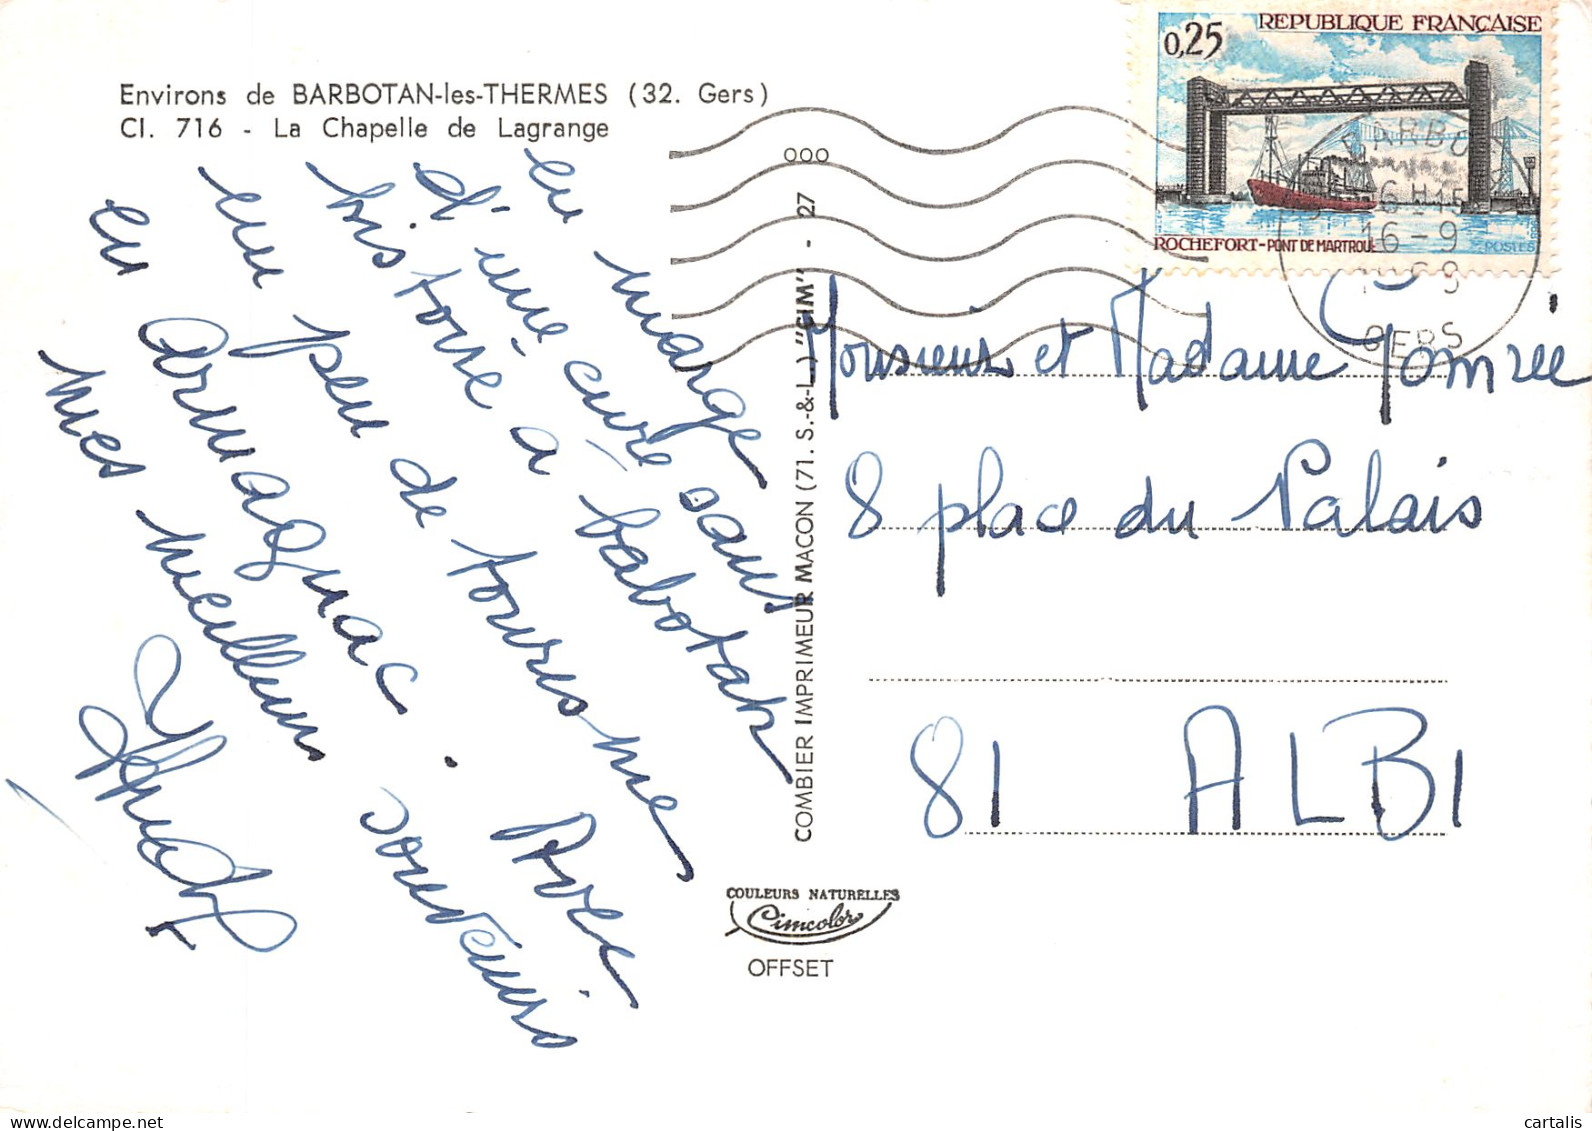 Environs de BARBOTAN-les-THERMES (32. Gers)
Cl. 716 - La Chapelle de Lagrange
en marge sans
d'une cure
histoire à babotan
un peu de tourisme
en Armagnac. Avec
mes meilleurs souvenirs
COMBIER IMPRIMEUR MACON (71. S.-&-L.) "CIM" - 27
000
COULEURS NATURELLES
Cimcolor
OFFSET
REPUBLIQUE FRANÇAISE
0,25
ROCHEFORT-PONT DE MARTROU
POSTES
BARBO
6H15
16-9
GERS
Monsieur et Madame
8 place du Palais
81 ALBI
cartalis